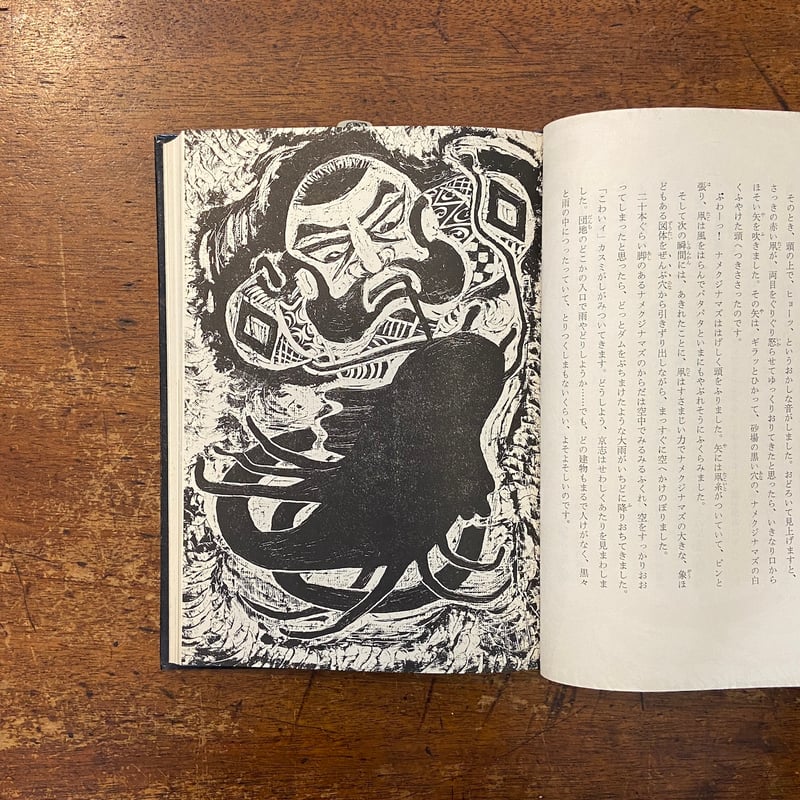 そのとき、頭の上で、ヒョーッ、というおかしな音がしました。おどろいて見上げますと、
さっきの赤い凧が、両目をぐりぐり怒らせてゆっくりおりてきたと思ったら、いきなり口から
ほそい矢を吹きました。その矢は、ギラッとひかって、砂場の黒い穴の、ナメクジナマズの白
くふやけた頭へつきささったのです。
ぶわーっ！　ナメクジナマズははげしく頭をふりました。矢には凧糸がついていて、ピンと
張り、凧は風をはらんでバタバタといまにもやぶれそうにふくらみました。
そして次の瞬間には、あきれたことに、凧はすさまじい力でナメクジナマズの大きな、象ほ
どもある図体をぜんぶ穴から引きずり出しながら、まっすぐに空へかけのぼりました。
二十本ぐらい脚のあるナメクジナマズのからだは空中でみるみるふくれ、空をすっかりおお
ってしまったと思ったら、どっとダムをぶちまけたような大雨がいちどに降りおちてきました。
「こわいィ」カスミがしがみついてきます。どうしよう、京志はせわしくあたりを見まわしま
した。団地のどこかの入口で雨やどりしようか……でも、どの建物もまるで人けがなく、黒々
と雨の中につったっていて、とりつくしまもないくらい、よそよそしいのです。